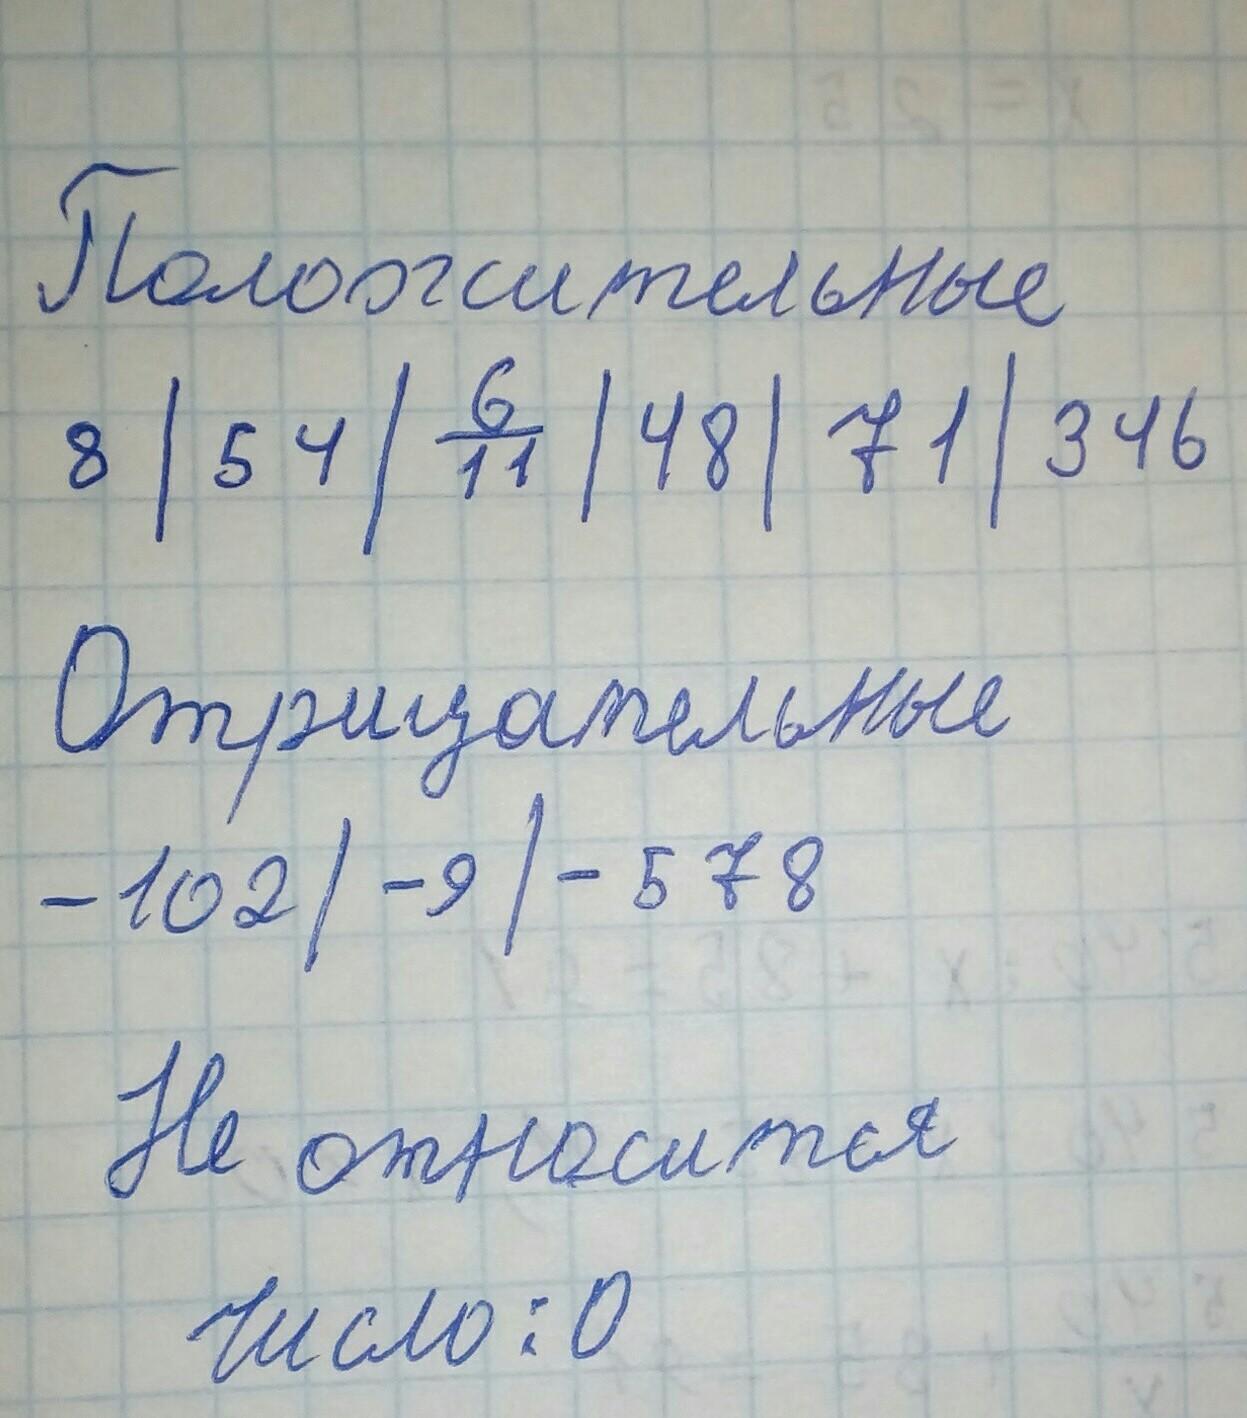 Положительные
8 | 54 | 6/11 | 48 | 71 | 346
Отрицательные
-102 | -9 | -578
Не относится
число: 0